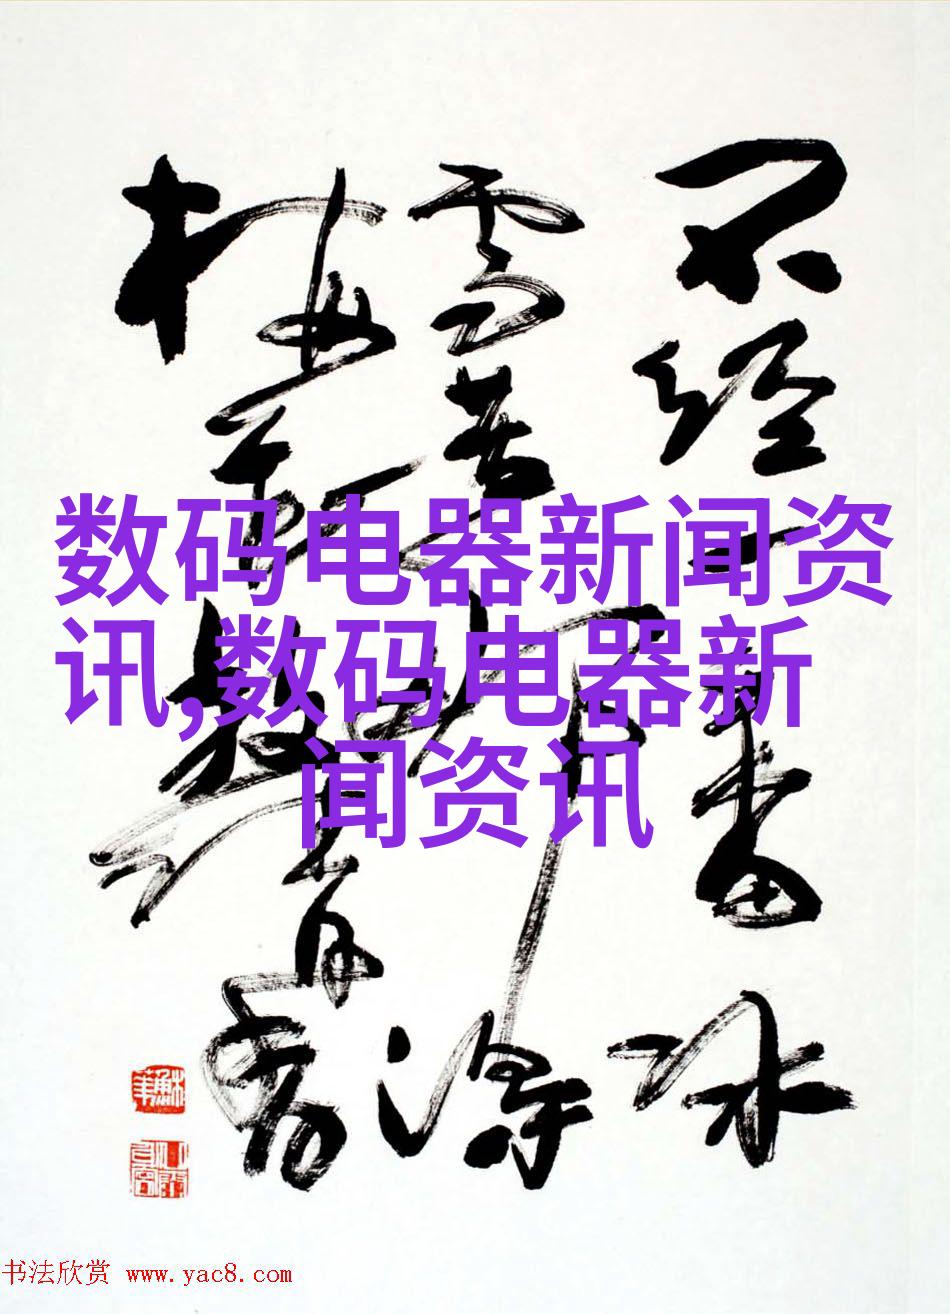 不经一番冰
雪苦那得
梅花清香
数码电器新闻资
讯,数码电器新
闻资讯
书法欣赏 www.yac8.com